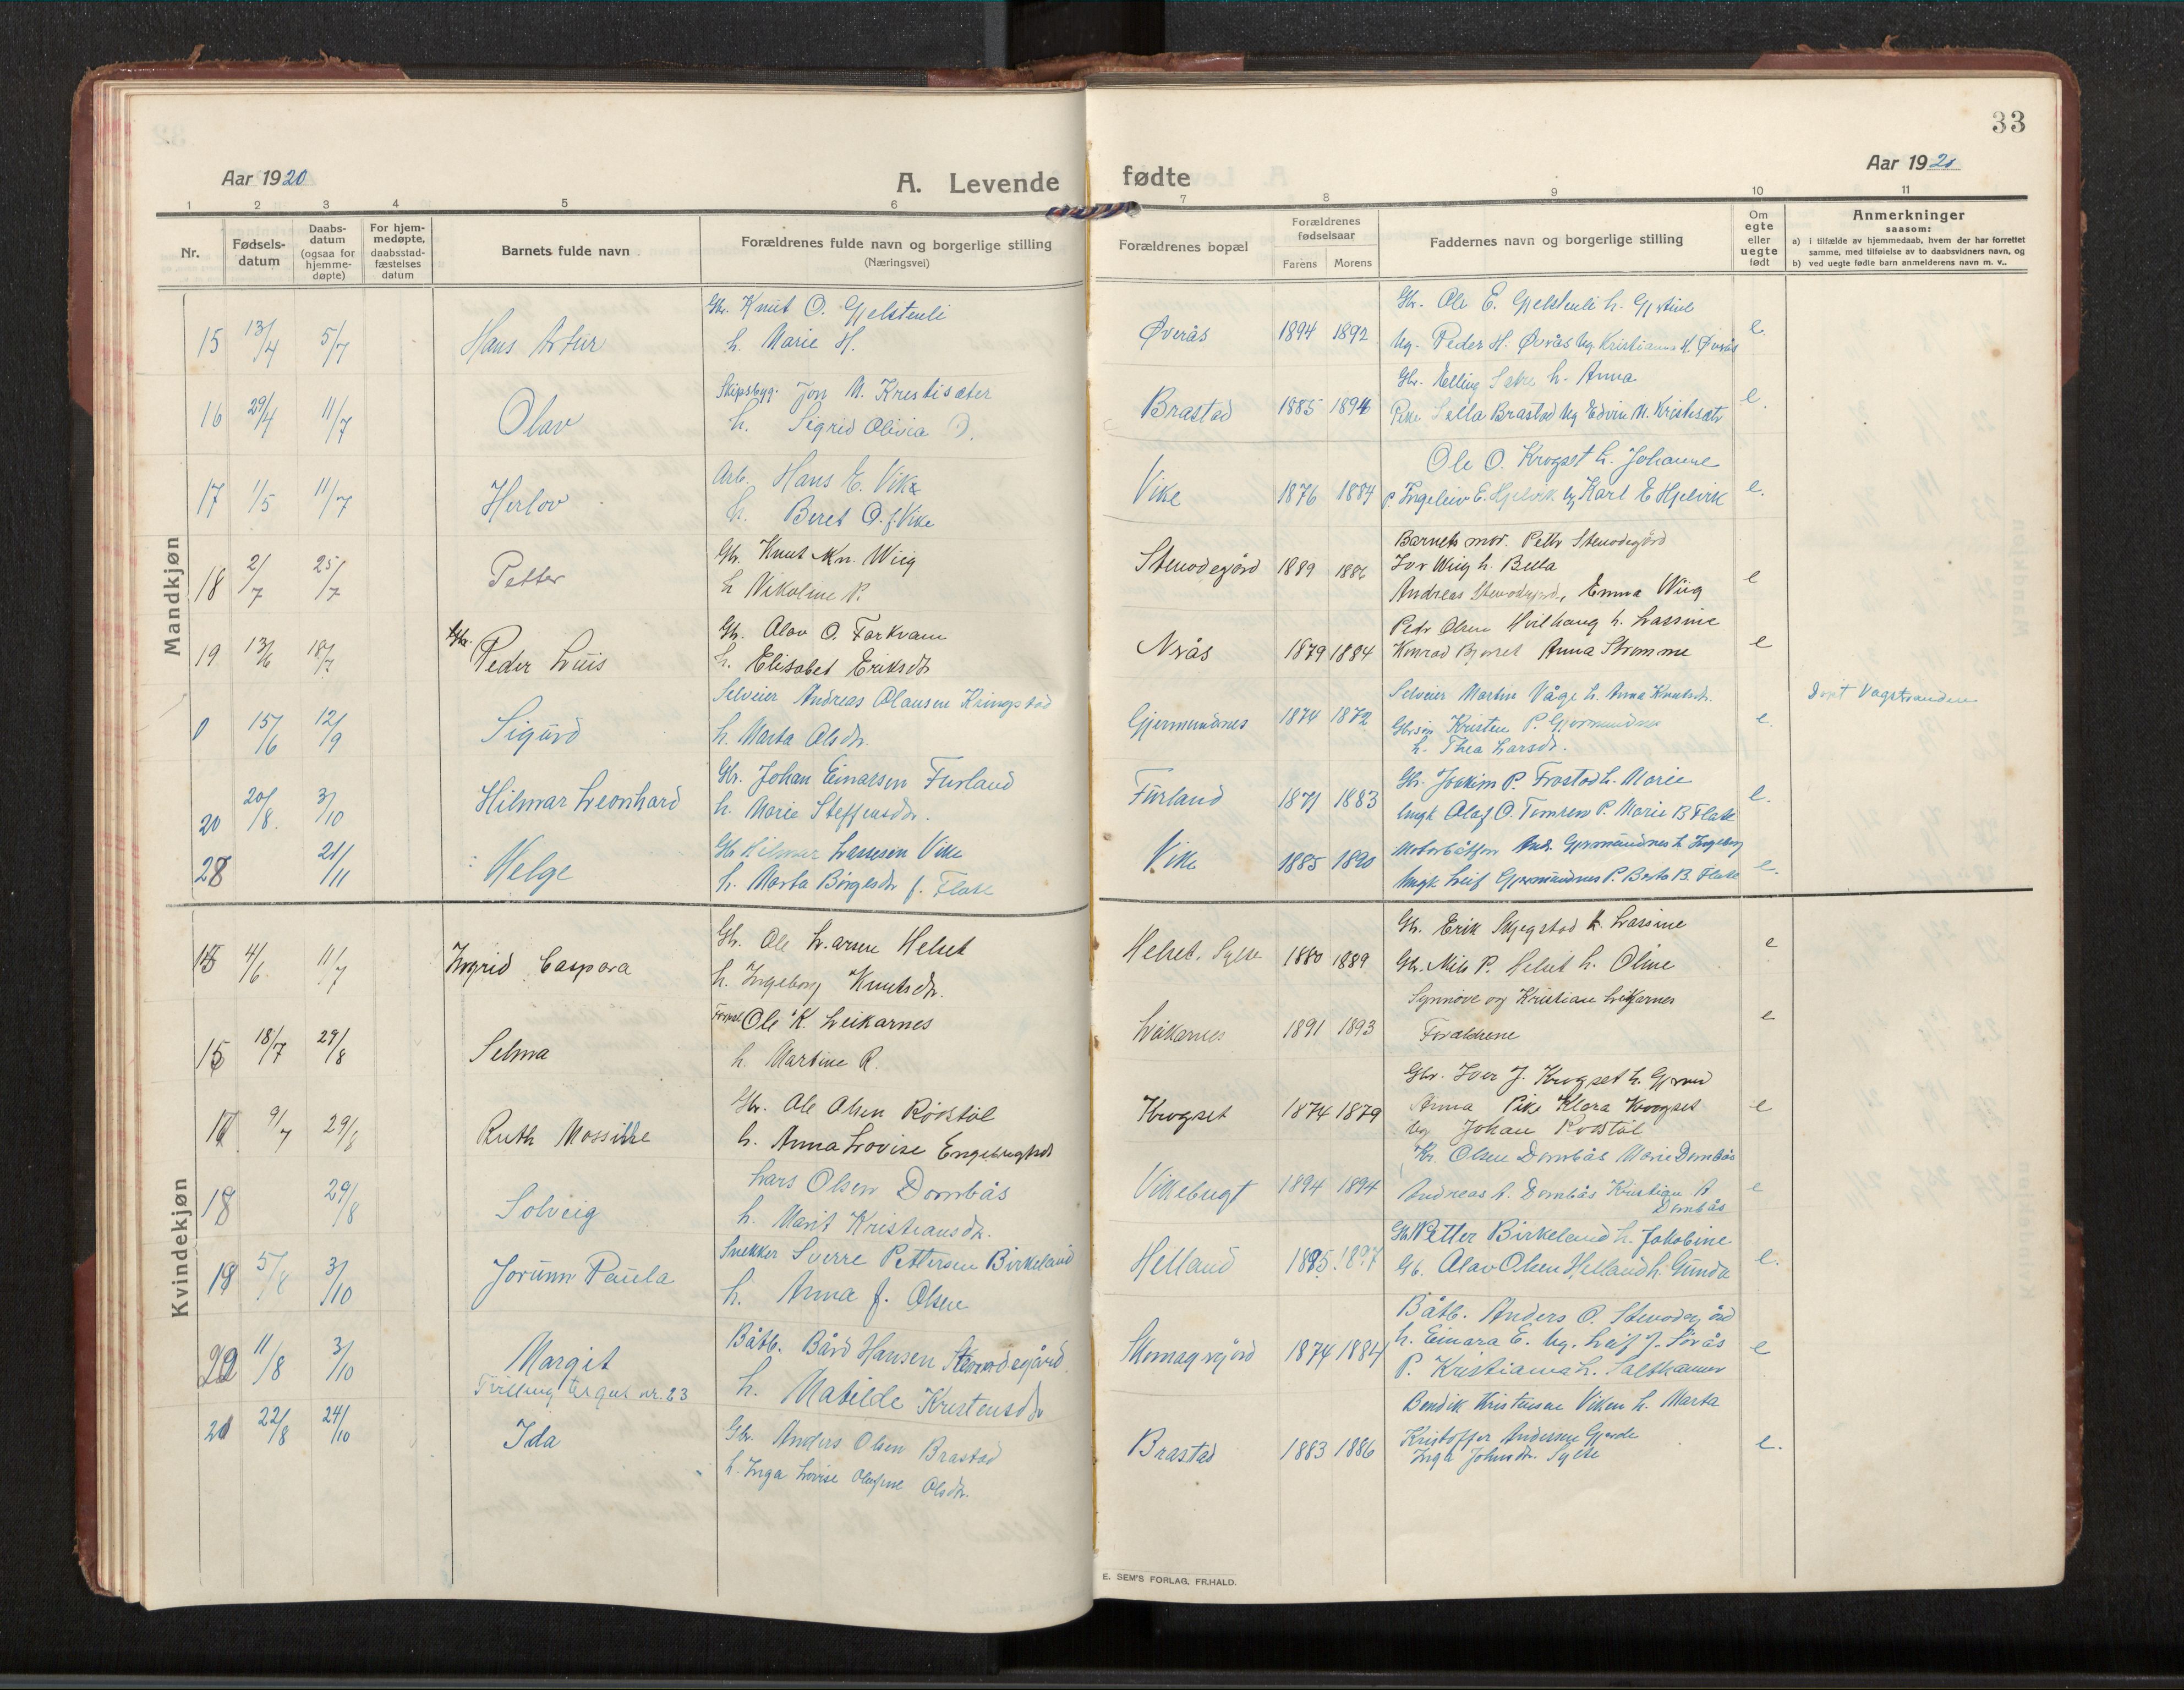 33
Aar 1920
A. Levende fødte
Aar 1920
1 2 3 4 5 6 7 8 9 10 11
Nr.
Fødsels-
datum
Daabs-
datum
(ogsaa for
hjemme-
døpte)
For hjem-
medøpte,
daabsstad-
fæstelses
datum
Barnets fulde navn
Forældrenes fulde navn og borgerlige stilling
(Næringsvei)
Forældrenes bopæl
Forældrenes
fødselsaar
Farens Morens
Faddernes navn og borgerlige stilling
Om
egte
eller
uegte
født
Anmerkninger
saasom:
a) i tilfælde av hjemmedaab, hvem der har forrettet
samme, med tilføielse av to daabsvidners navn, og
b) ved uegte fødte barn anmelderens navn m. v..
Mandkjøn
Gbr. Knut O. Gjelstenli
Gbr. Ole E. Gjelstenli h.
15 13/4 5/7 Hans Artur
h. Marie H.
Øverås 1894 1892
Ug. Peder H. Øverås Ug. Kristianna H. Øverås e.
Skipsbyg. Jon M. Kristisæter
Gbr. Elling Sæter h. Anna
16 29/4 11/7 Olav
h. Sigrid Olivia O.
Brastad 1885 1894
Pike Salla Brastad Ug Edvin M. Kristisæter e.
Arb. Hans E. Vike
Ole O. Krogset h. Johanne
17 1/5 11/7 Herlov
h. Beret O. f. Vike
Vike 1876 1884
p. Ingeleiv E. Hjelvik Ug Karl E Hjelvik e.
Gb. Knut Kn. Wiig
Barnets mor. Petter Stenodegård
18 2/7 25/7 Petter
h Nikoline P.
Stenodegård 1889 1886
Ivr Wiig h. Bella
Andreas Stenodegård, Emma Wiig e
Gb. Olav O. Farkvam
Peder Olsen Hvilhaug h. Lassine
19 13/6 18/7 Gbr. Peder Luis
h. Elisabet Eriksdtr
Nerås 1879 1884
Konrad Bjerset Anna Strømme e
Selveier Andreas Olausen Kringstad
Selveier Martin Våge h. Anna Knutsdtr.
Døpt Vagstranden
0 15/6 12/9 Sigurd
h. Marta Olsdtr.
Gjermundnes 1874 1872
Gbrsøn Kristen P. Gjermundnes
h. Thea Larsdtr. e.
Gbr. Johan Einarsen Furland
Gb. Joakim P. Frostad h. Marie
20 20/8. 3/10 Hilmar Leonhard
h. Marie Steffensdtr.
Furland 1871 1883
Ungk. Olaf O. Tomren P. Marie B Flate e.
Gb Hilmar Lassesen Vike
Motorbåtfører And. Gjermundnes h Ingeborg
28 21/11 Helge
h. Marta Børgesdtr f. Flate
Vike 1885 1890
Ungk. Leif Gjermundnes P. Berta B. Flate e.
Kvindekjøn
Gb. Ole Larsen Helset
Gb. Erik Skjegstad h. Lassine
15 4/6 11/7 Ingrid Caspara
h. Ingeborg Knutsdtr.
Helset, Sylte 1880 1889
Gb. Nils P. Helset h. Oline e
Synnøve og Kristian Leikarnes
15 18/7 29/8 Selma
Ole K. Leikarnes
h. Martine R.
Leikarnes 1891 1893
Forældrene e
Gb. Ole Olsen Rødstøl
Gbr. Iver J. Krogset h.
9/7 29/8 Ruth
h. Anna Lovise
Krogset 1874 1879
Anna Pike Klara Krogset
Ug Johan Rødstøl e
Lars Olsen Dombås
Kr. Olsen Dombås Marie Dombås
18 29/8 Solveig
h. Marit Kristiansdtr.
Vikebugt 1894 1894
Andreas A. Dombås Kristian A
Dombås e
Snekker Sverre Pettersen Birkeland
Gb Petter Birkeland h. Jakobine
19 5/8 3/10 Jorunn Paula
h. Anna f. Olsen
Helland 1895 1897
Gb. Olav Olsen Helland h. Gunda e.
Båtb. Bård Hansen Stenodegård
Båtb. Anders O. Stenodegård
22 11/8 3/10 Margit
Tvilling nr. 23
h. Matilde Kristensdtr
1874 1884
h. Einara E. Ug. Leif J. Sørås
P. Kristiana L. Salthammer e
Bendik Kristensen Viken h. Marta
20 22/8 24/10 Ida
Gbr. Anders Olsen Brastad
h. Inga Lovise Olufine Olsdtr.
Brastad 1883 1886
Kristoffer Andersen Gjerde
Inga Johnsdtr. Sylte e.
E. SEM'S FORLAG, FR.HALD.